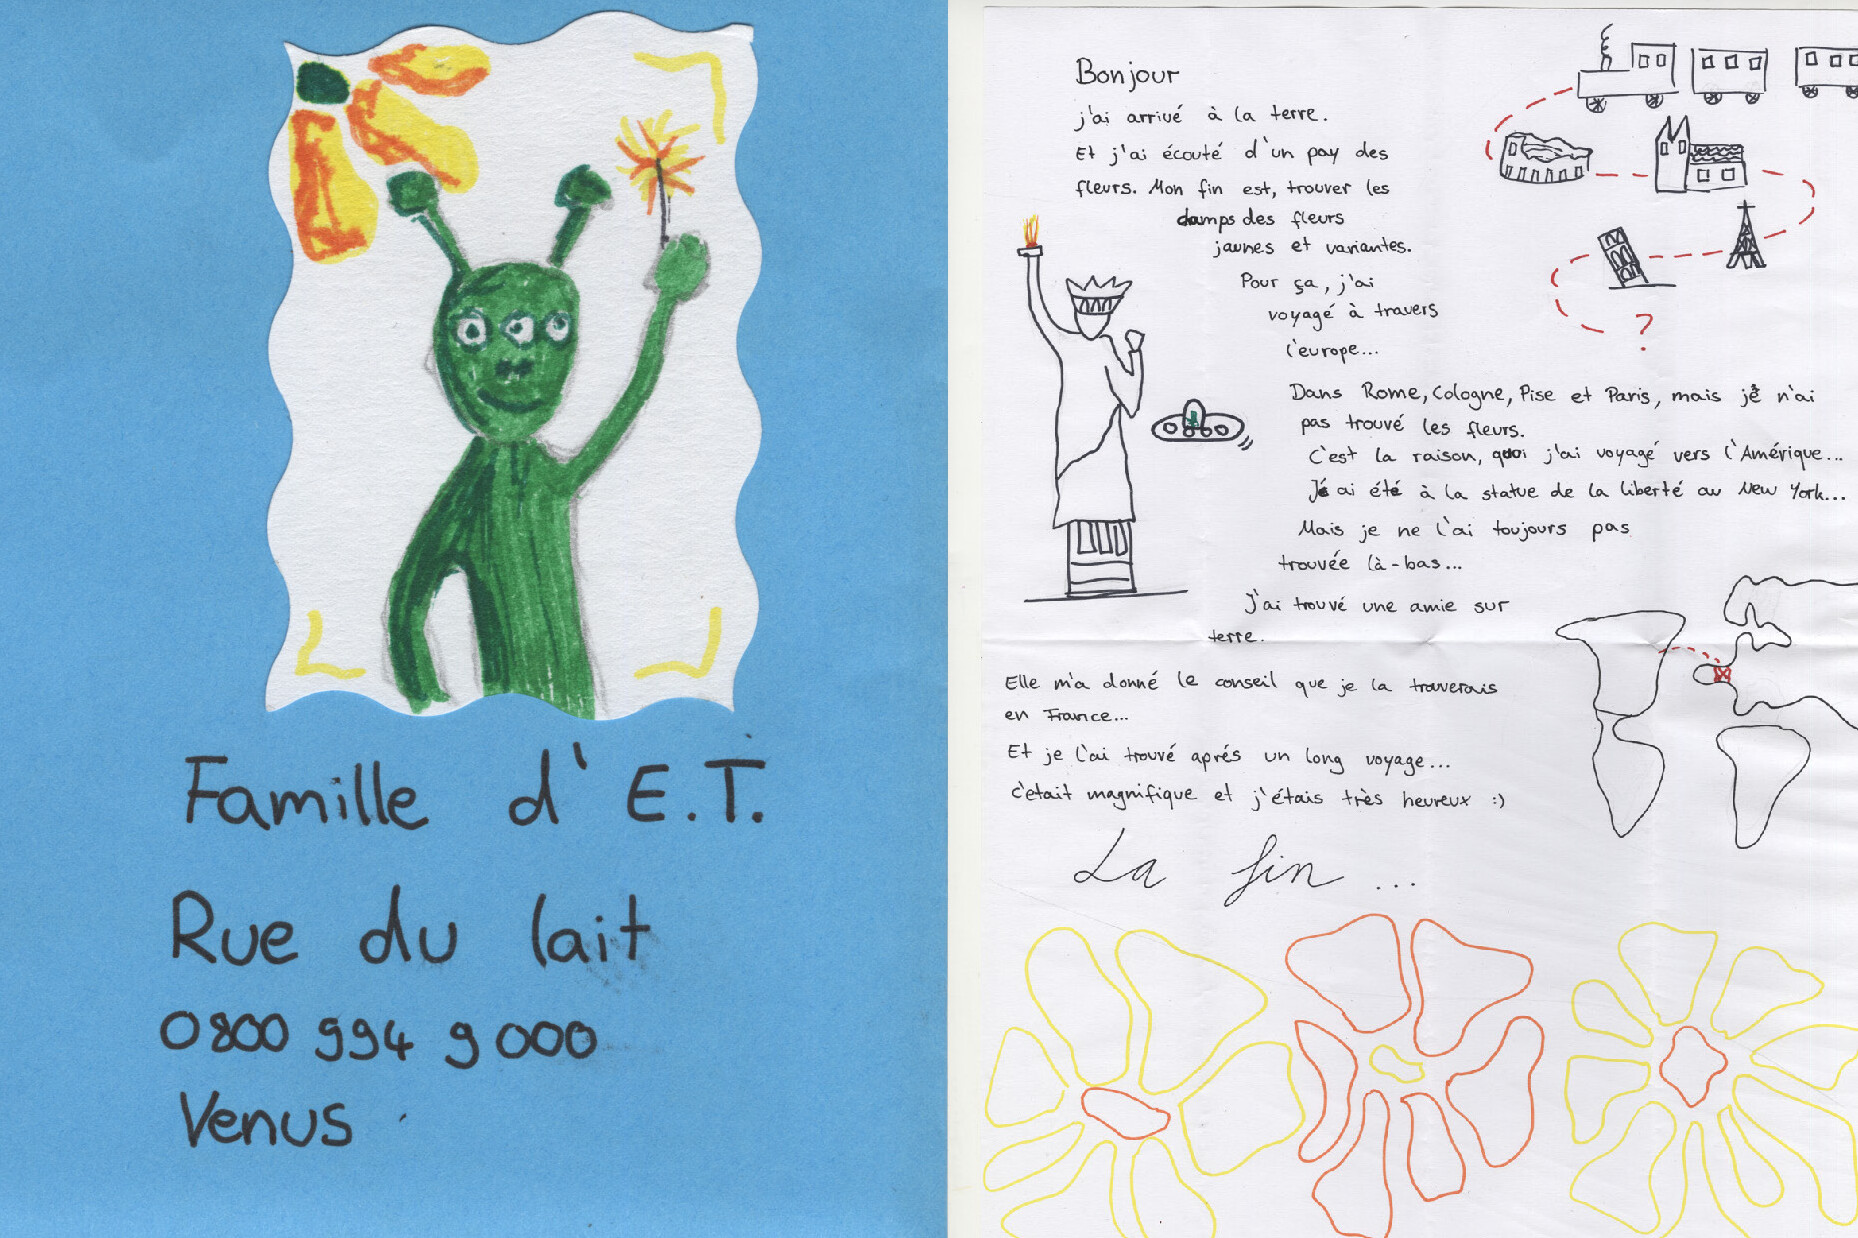 Famille d'E.T.
Rue du lait
0800 994 9000
Venus
Bonjour
j'ai arrivé à la terre.
Et j'ai écouté d'un pay des
fleurs. Mon fin est, trouver les
champs des fleurs
jaunes et variantes.
Pour ça, j'ai
voyagé à travers
l'europe...
Dans Rome, Cologne, Pise et Paris, mais je n'ai
pas trouvé les fleurs.
C'est la raison, quoi j'ai voyagé vers l'Amérique...
J'ai été à la statue de la liberté au New York...
Mais je ne l'ai toujours pas
trouvée là-bas...
J'ai trouvé une amie sur
terre.
Elle m'a donné le conseil que je la trouverais
en France...
Et je l'ai trouvé aprés un long voyage...
c'etait magnifique et j'étais très heureux :)
La fin ...
?